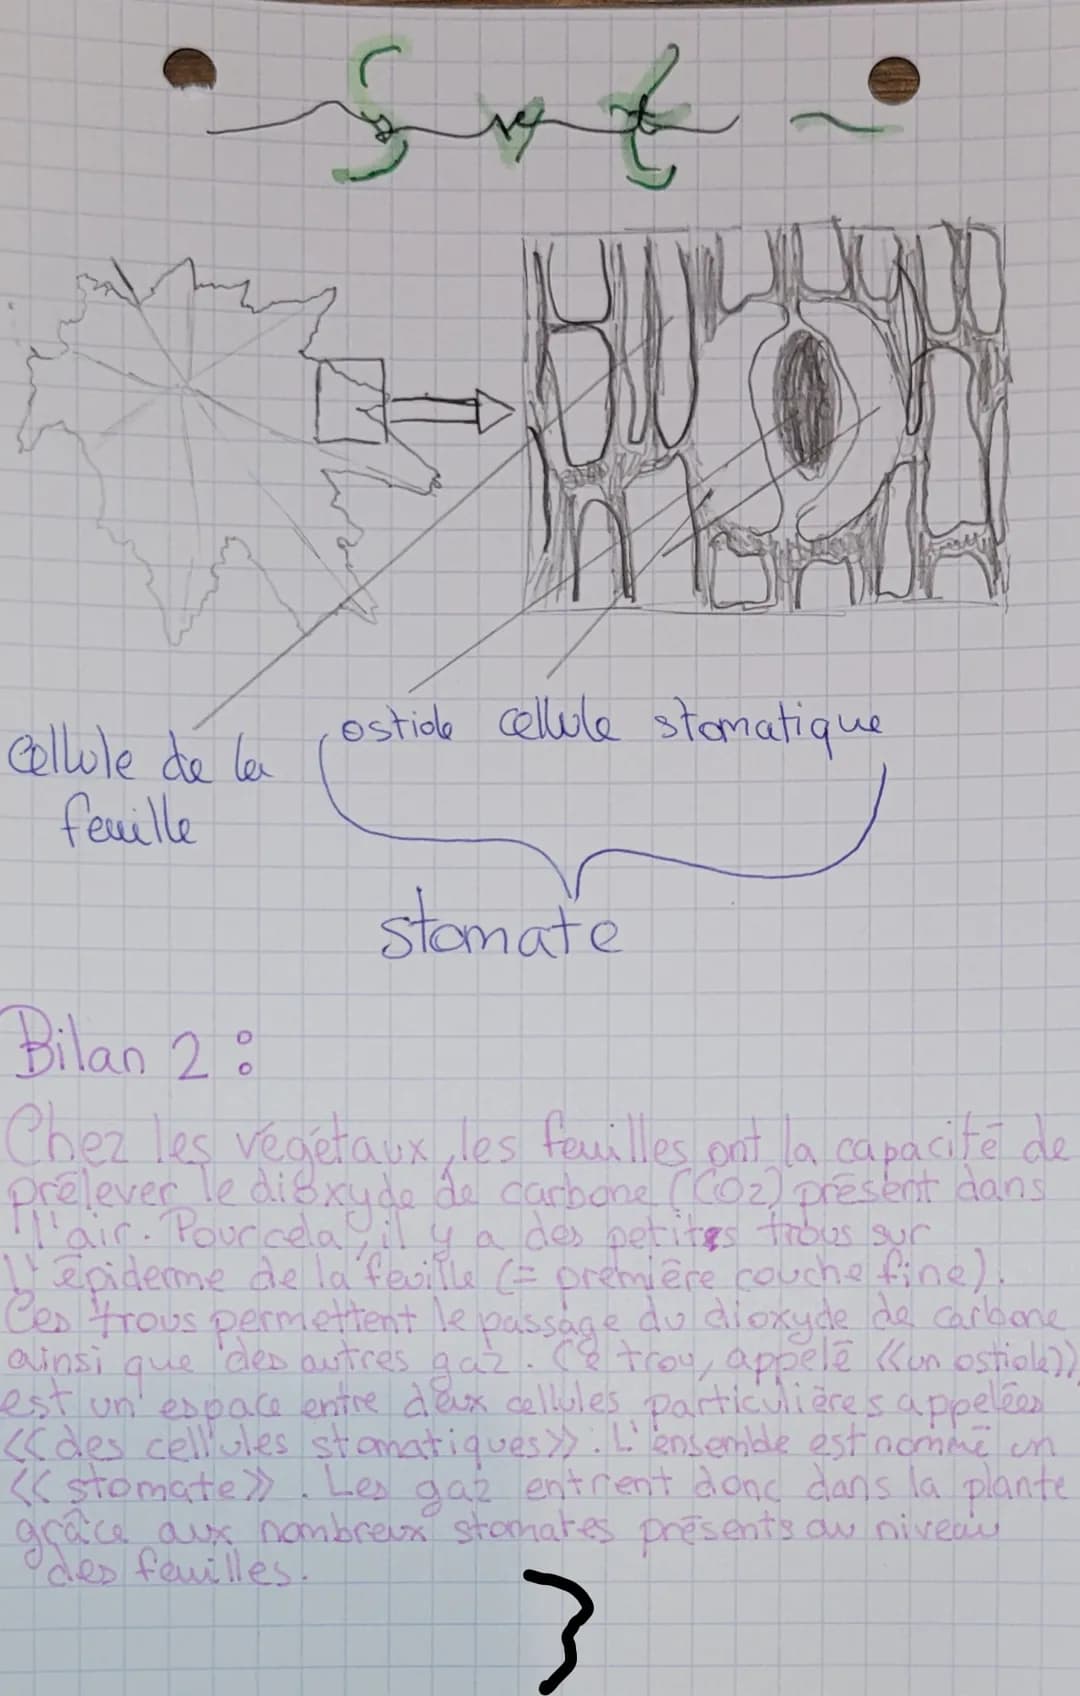 Svt
ostiole cellule stomatique
cellule de la
feuille
stomate
Bilan 2 :
Chez les végétaux, les feuilles ont la capacité de
prélever le dioxyde de carbone (CO2) présent dans
l'air. Pour cela, il y a des petits trous sur
l'épiderme de la feuille (= première couche fine).
Ces trous permettent le passage du dioxyde de carbone
ainsi que des autres gaz. Ce trou, appelé <<un ostiole>>
est un espace entre deux cellules particulières appelées
<<des cellules stomatiques>>. L'ensemble est nommé un
<<stomate>>. Les gaz entrent donc dans la plante
grâce aux nombreux stomates présents au niveau
des feuilles.
3